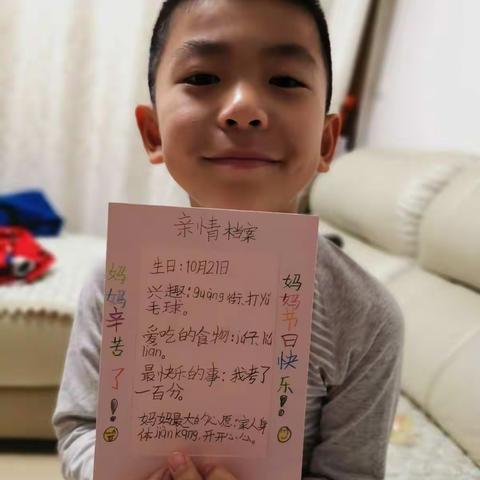 亲情档案
妈妈辛苦了!
生日:10月21日
兴趣:guàng街、打yǔ
毛球。
爱吃的食物:
lián。
最快乐的事:我考了
一百分。
妈妈最大的心愿:家人身
体jiànkāng,开开心心。
妈妈节日快乐!